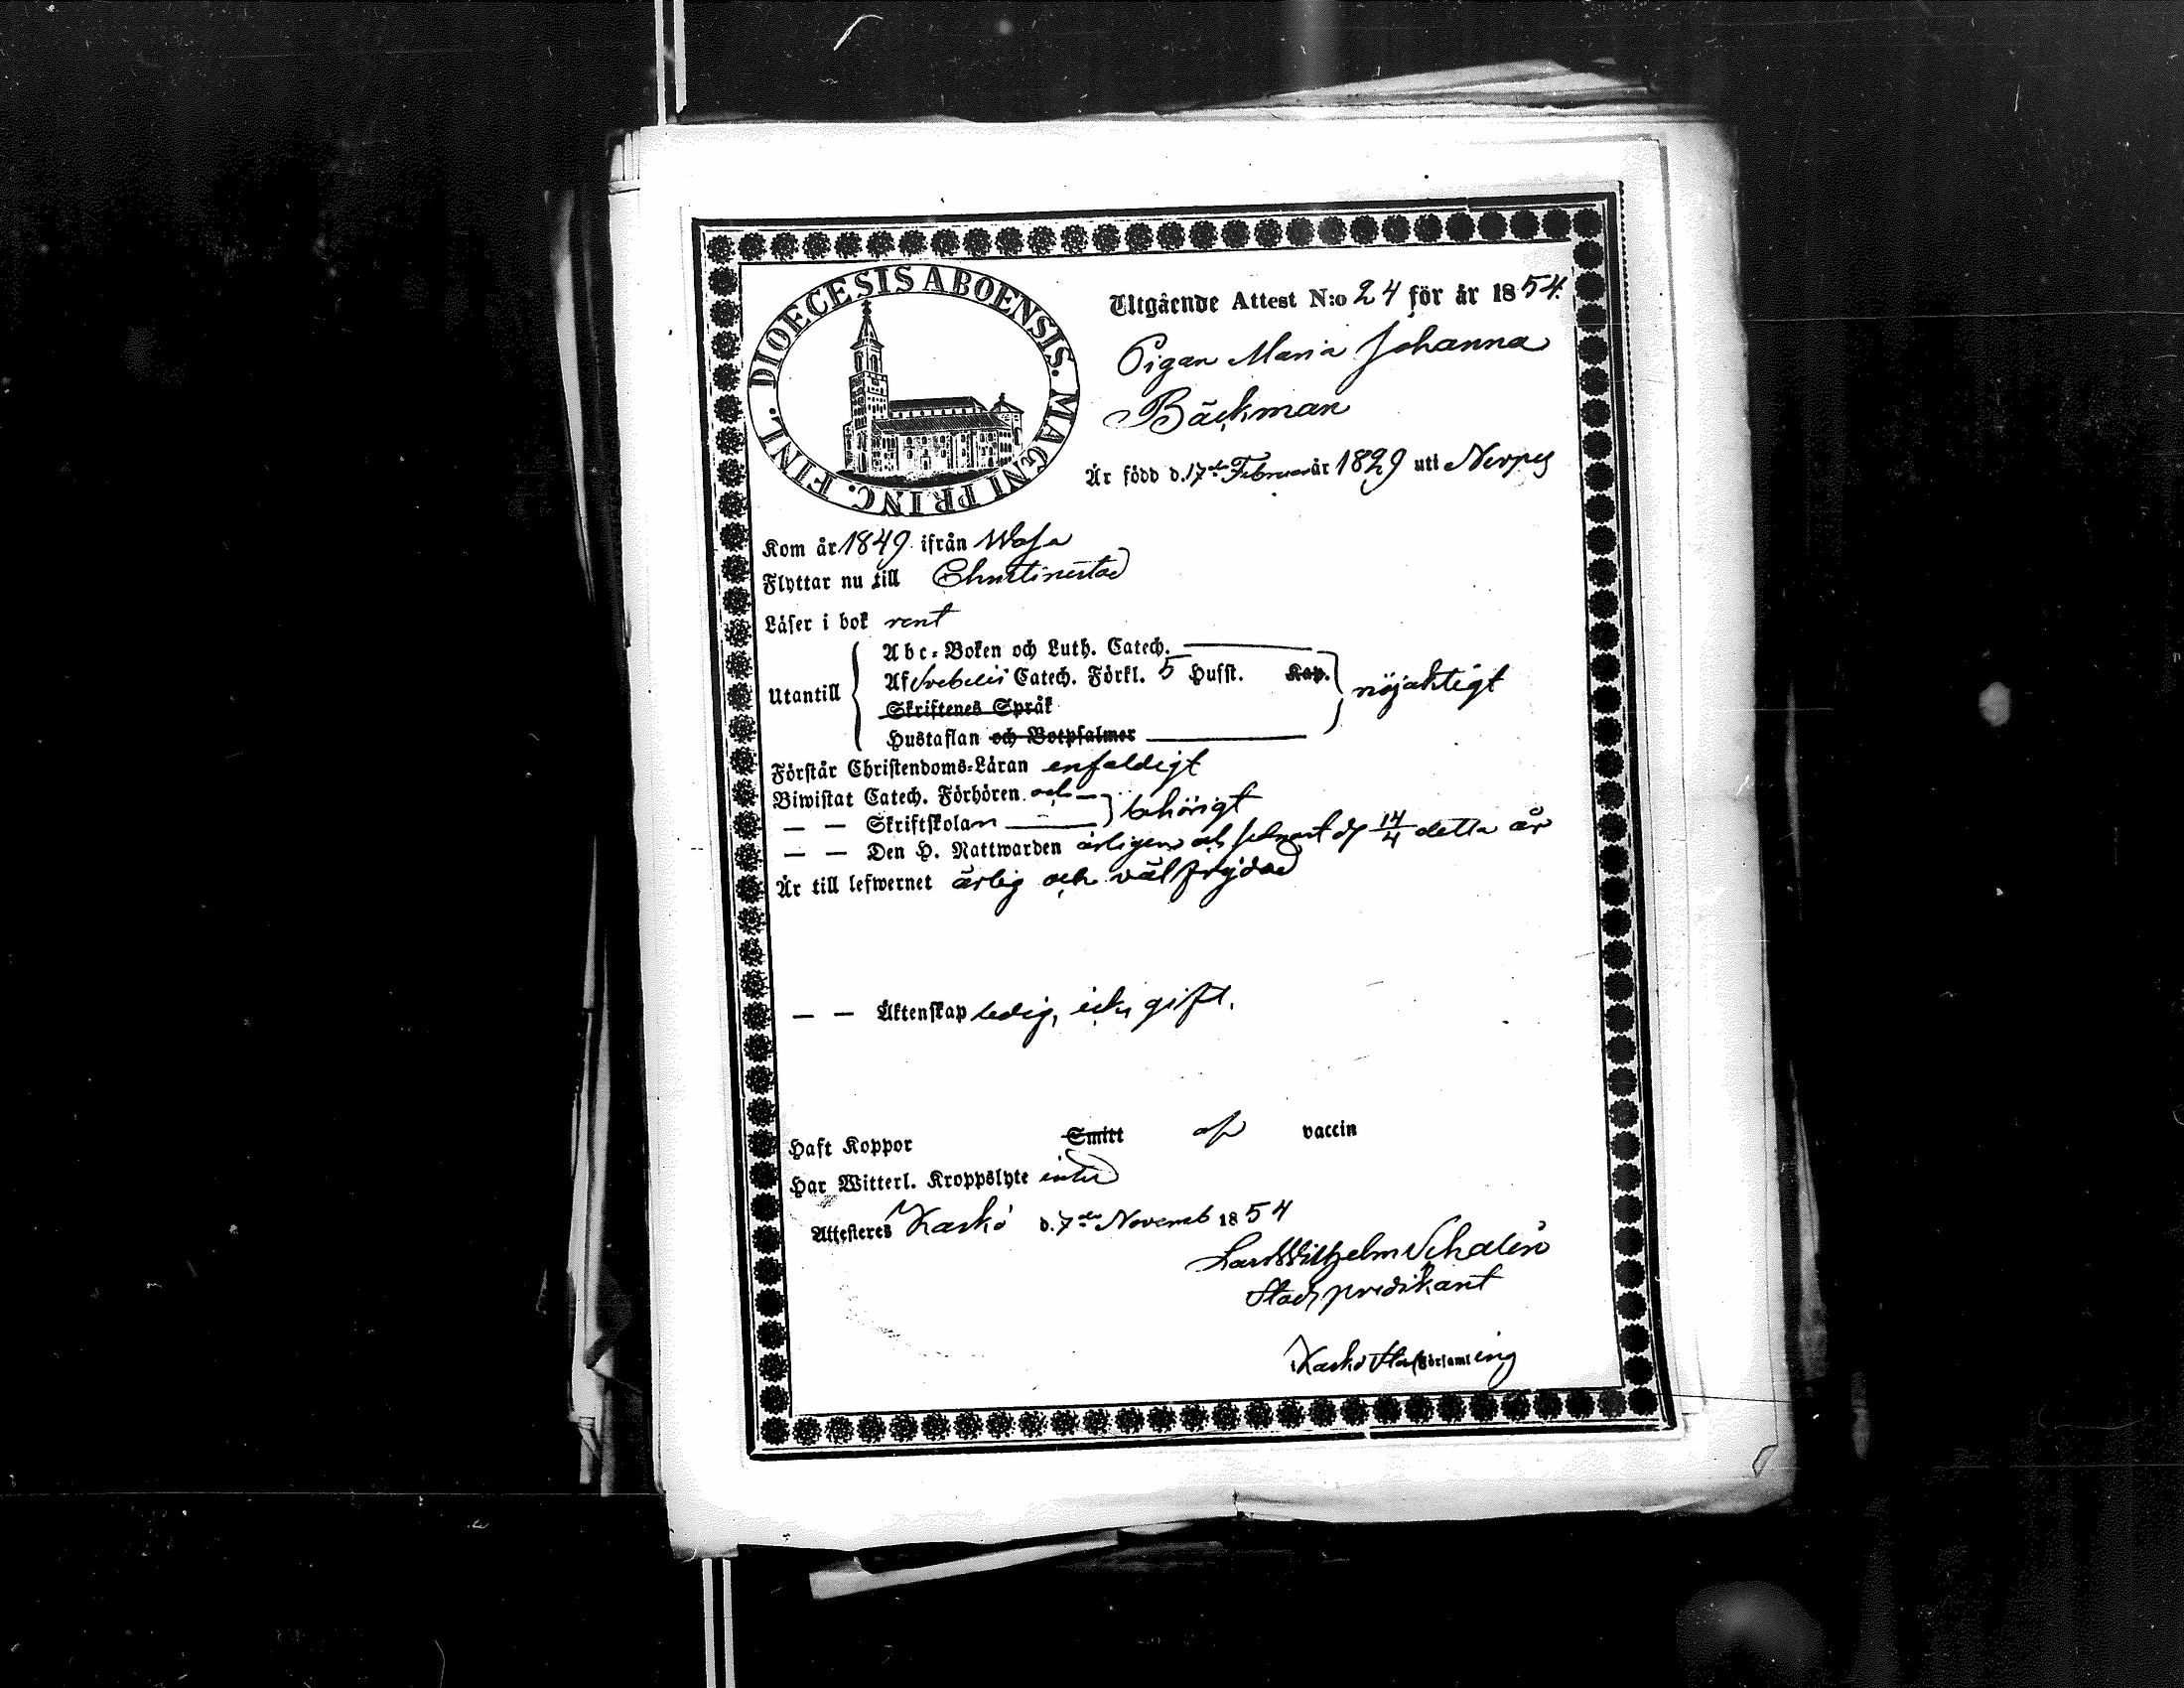 DIOECESIS ABOENSIS. MAGNI PRINC. FINL.
Utgående Attest N:o 24 för år 1854.
Pigan Maria Johanna
Bäckman
Är född d. 17de Februar år 1829 uti Nerpes
Kom år 1849 ifrån Wasa
Flyttar nu till Christinestad
Läser i bok rent
Utantill
Abc-Boken och Luth. Catech.
Af Svebelii Catech. Förkl. 5 Hufst. Kap.
nöjaktigt
Skriftenes Språk
Hustaflan och Botpsalmer
Förstår Christendoms-Läran enfaldigt
Biwistat Catech. Förhören och
— — Skriftskolan behörigt
— — Den H. Nattwarden årligen och sednast d. 14/4 detta år
Är till lefwernet ärlig och välfrejdad
— — Äktenskap ledig, icke gift.
Haft Koppor Smitt af vaccin
Har Witterl. Kroppslyte intet
Attesteres Kaskö d. 7de Novemb 1854
Lars Wilhelm Schalin
Stadspredikant
Kaskö Stads Församling